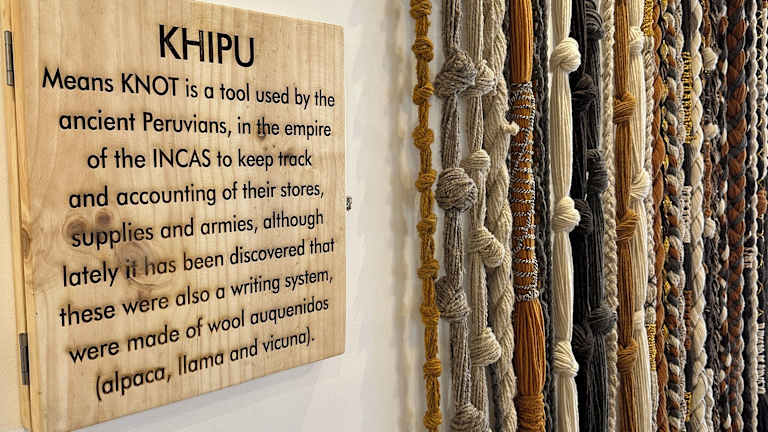 KHIPU
Means KNOT is a tool used by the
ancient Peruvians, in the empire
of the INCAS to keep track
and accounting of their stores,
supplies and armies, although
lately it has been discovered that
these were also a writing system,
were made of wool auquenidos
(alpaca, llama and vicuna).